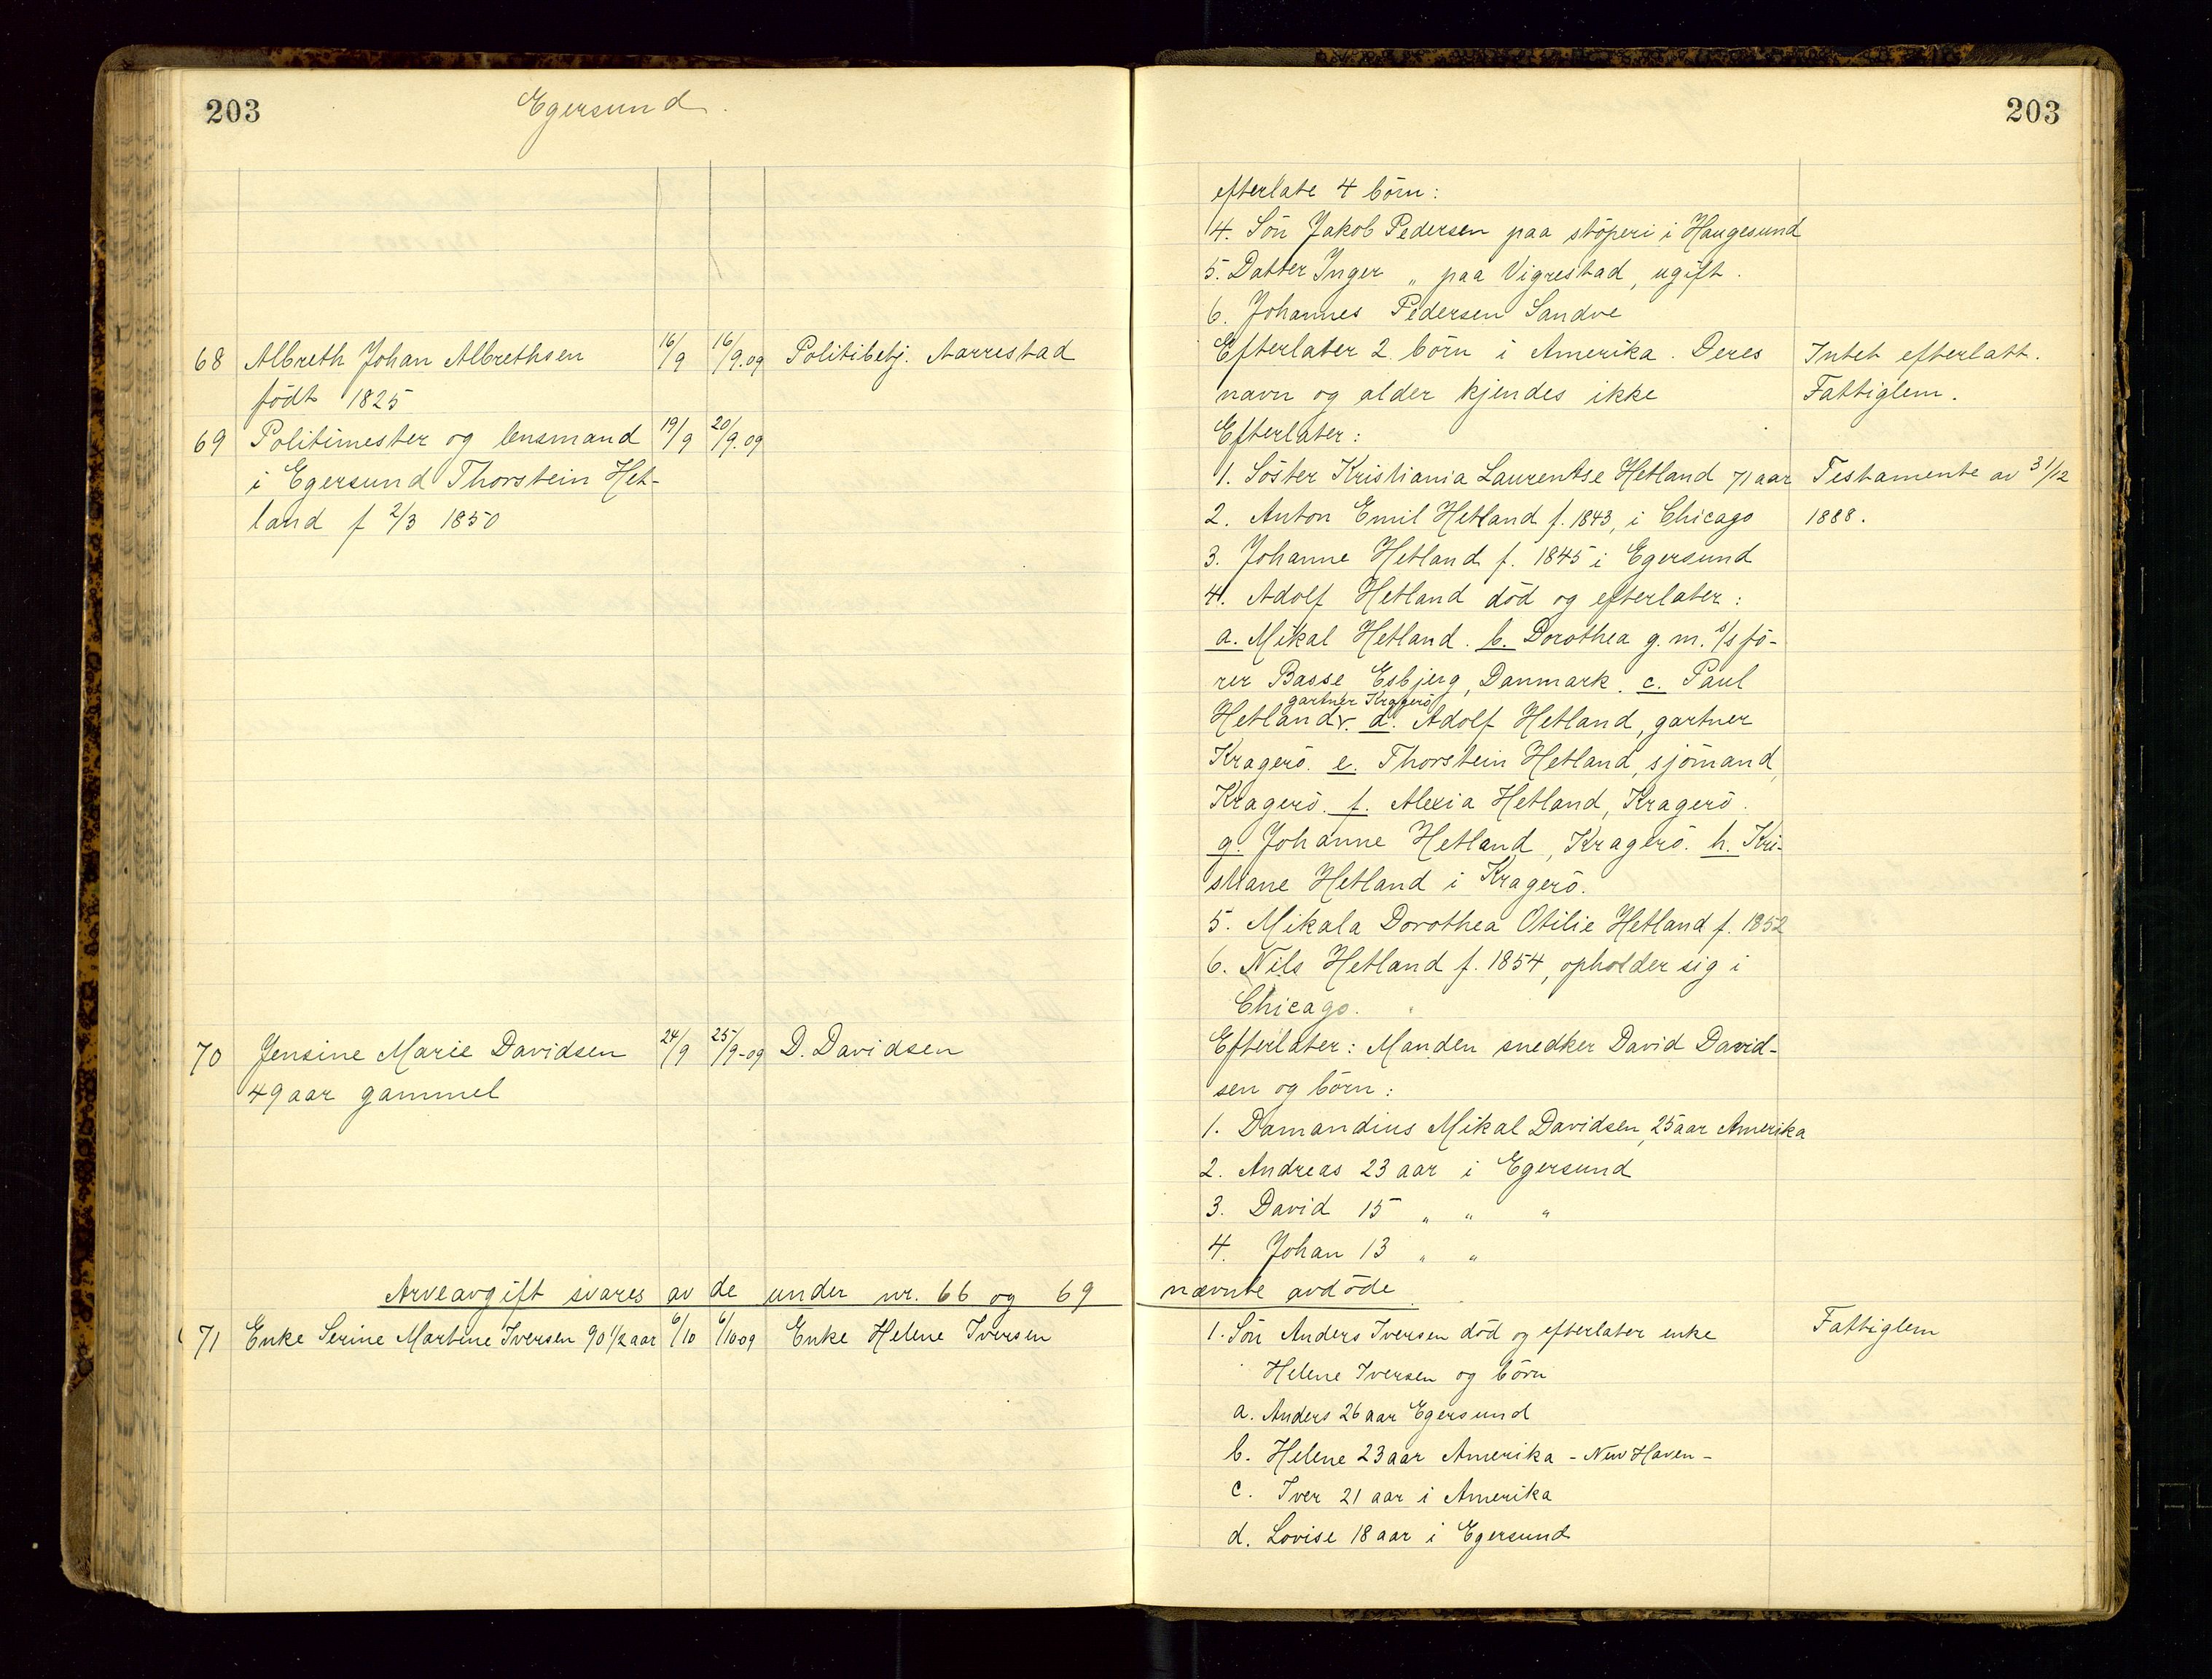 203
Egersund.
68 Albreth Johan Albrethsen 16/9 16/9.09 Politibetj. Aarrestad
födt 1825
69 Politimester og lensmand 19/9 20/9.09
i Egersund Thorstein Het-
land f 2/3 1850
70 Jensine Marie Davidsen 24/9 25/9-09 D. Davidsen
49 aar gammel
Arveavgift svares av de under nr. 66 og 69 nævnte avdöde.
71 Enke Serine Martine Iversen 90 1/2 aar 6/10 6/10 09 Enke Helene Iversen
203
efterlate 4 börn:
4. Sön Jakob Pedersen paa stöperi i Haugesund
5. Datter Inger " paa Vigrestad, ugift.
6. Johannes Pedersen Sandve
Efterlater 2 börn i Amerika. Deres Intet efterlatt.
navn og alder kjendes ikke Fattiglem.
Efterlater:
1. Söster Kristiania Laurentse Hetland 71 aar Testamente av 31/12
2. Anton Emil Hetland f. 1843, i Chicago 1888.
3. Johanne Hetland f. 1845 i Egersund
4. Adolf Hetland död og efterlater:
a. Mikal Hetland. b. Dorothea g. m. s/s fö-
rer Basse Esbjerg, Danmark. c. Paul
gartner Kragerö
Hetland v. d. Adolf Hetland, gartner
Kragerö. e. Thorstein Hetland, sjömand,
Kragerö. f. Alexia Hetland, Kragerö.
g. Johanne Hetland, Kragerö. h. Kri-
stiane Hetland i Kragerö.
5. Mikala Dorothea Otilie Hetland f. 1852
6. Nils Hetland f. 1854, opholder sig i
Chicago.
Efterlater: Manden snedker David David-
sen og börn:
1. Damandius Mikal Davidsen, 25 aar Amerika
2. Andreas 23 aar i Egersund
3. David 15 " " "
4. Johan 13 " "
1. Sön Anders Iversen död og efterlater enke Fattiglem
Helene Iversen og börn
a. Anders 26 aar Egersund
b. Helene 23 aar Amerika - New Haven -
c. Iver 21 aar i Amerika
d. Lovise 18 aar i Egersund